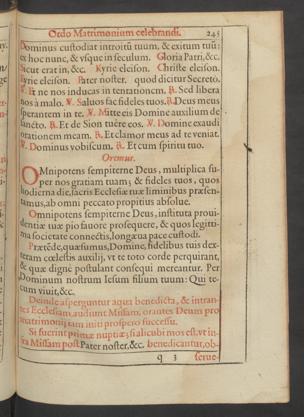 Ordo Matrimonium celebrandi. 245
Dominus custodiat introitũ tuum, & exitum tuũ:
ex hoc nunc, & vsque in seculum. Gloria Patri, &c.
Sicut erat in, &c. Kyrie eleison. Christe eleison.
Kyrie eleison. Pater noster. quod dicitur Secreto.
℣. Et ne nos inducas in tentationem. ℟. Sed libera
nos à malo. ℣. Saluos fac seruos tuos. ℟. Deus meus
sperantem in te. ℣. Mitte eis Domine auxilium de
sancto. ℟. Et de Sion tuere eos. ℣. Domine exaudi
orationem meam. ℟. Et clamor meus ad te veniat.
℣. Dominus vobiscum. ℟. Et cum spiritu tuo.
Oremus.
OMnipotens sempiterne Deus, multiplica su-
per nos gratiam tuam; & fideles tuos, quos
hodierna die, sacris Ecclesiæ tuæ liminibus præsen-
tamus, ab omni peccato propitius absolue.
Omnipotens sempiterne Deus, instituta proui-
dentiæ tuæ pio fauore prosequere, & quos legiti-
ma societate connectis, longæua pace custodi.
Prætẽde, quæsumus, Domine, fidelibus tuis dex-
teram cœlestis auxilij, vt te toto corde perquirant,
& quæ dignè postulant consequi mereantur. Per
Dominum nostrum Iesum filium tuum: Qui te-
cum viuit, &c.
Deinde asperguntur aqua benedicta, & intran-
tes Ecclesiam, audiunt Missam, orantes Deum pro
matrimonij tam initi prospero successu.
Si fuerint primæ nuptiæ; si alicubi mos est, vt in-
tra Missam post Pater noster, &c. benedicantur, ob-
q 3 serue-